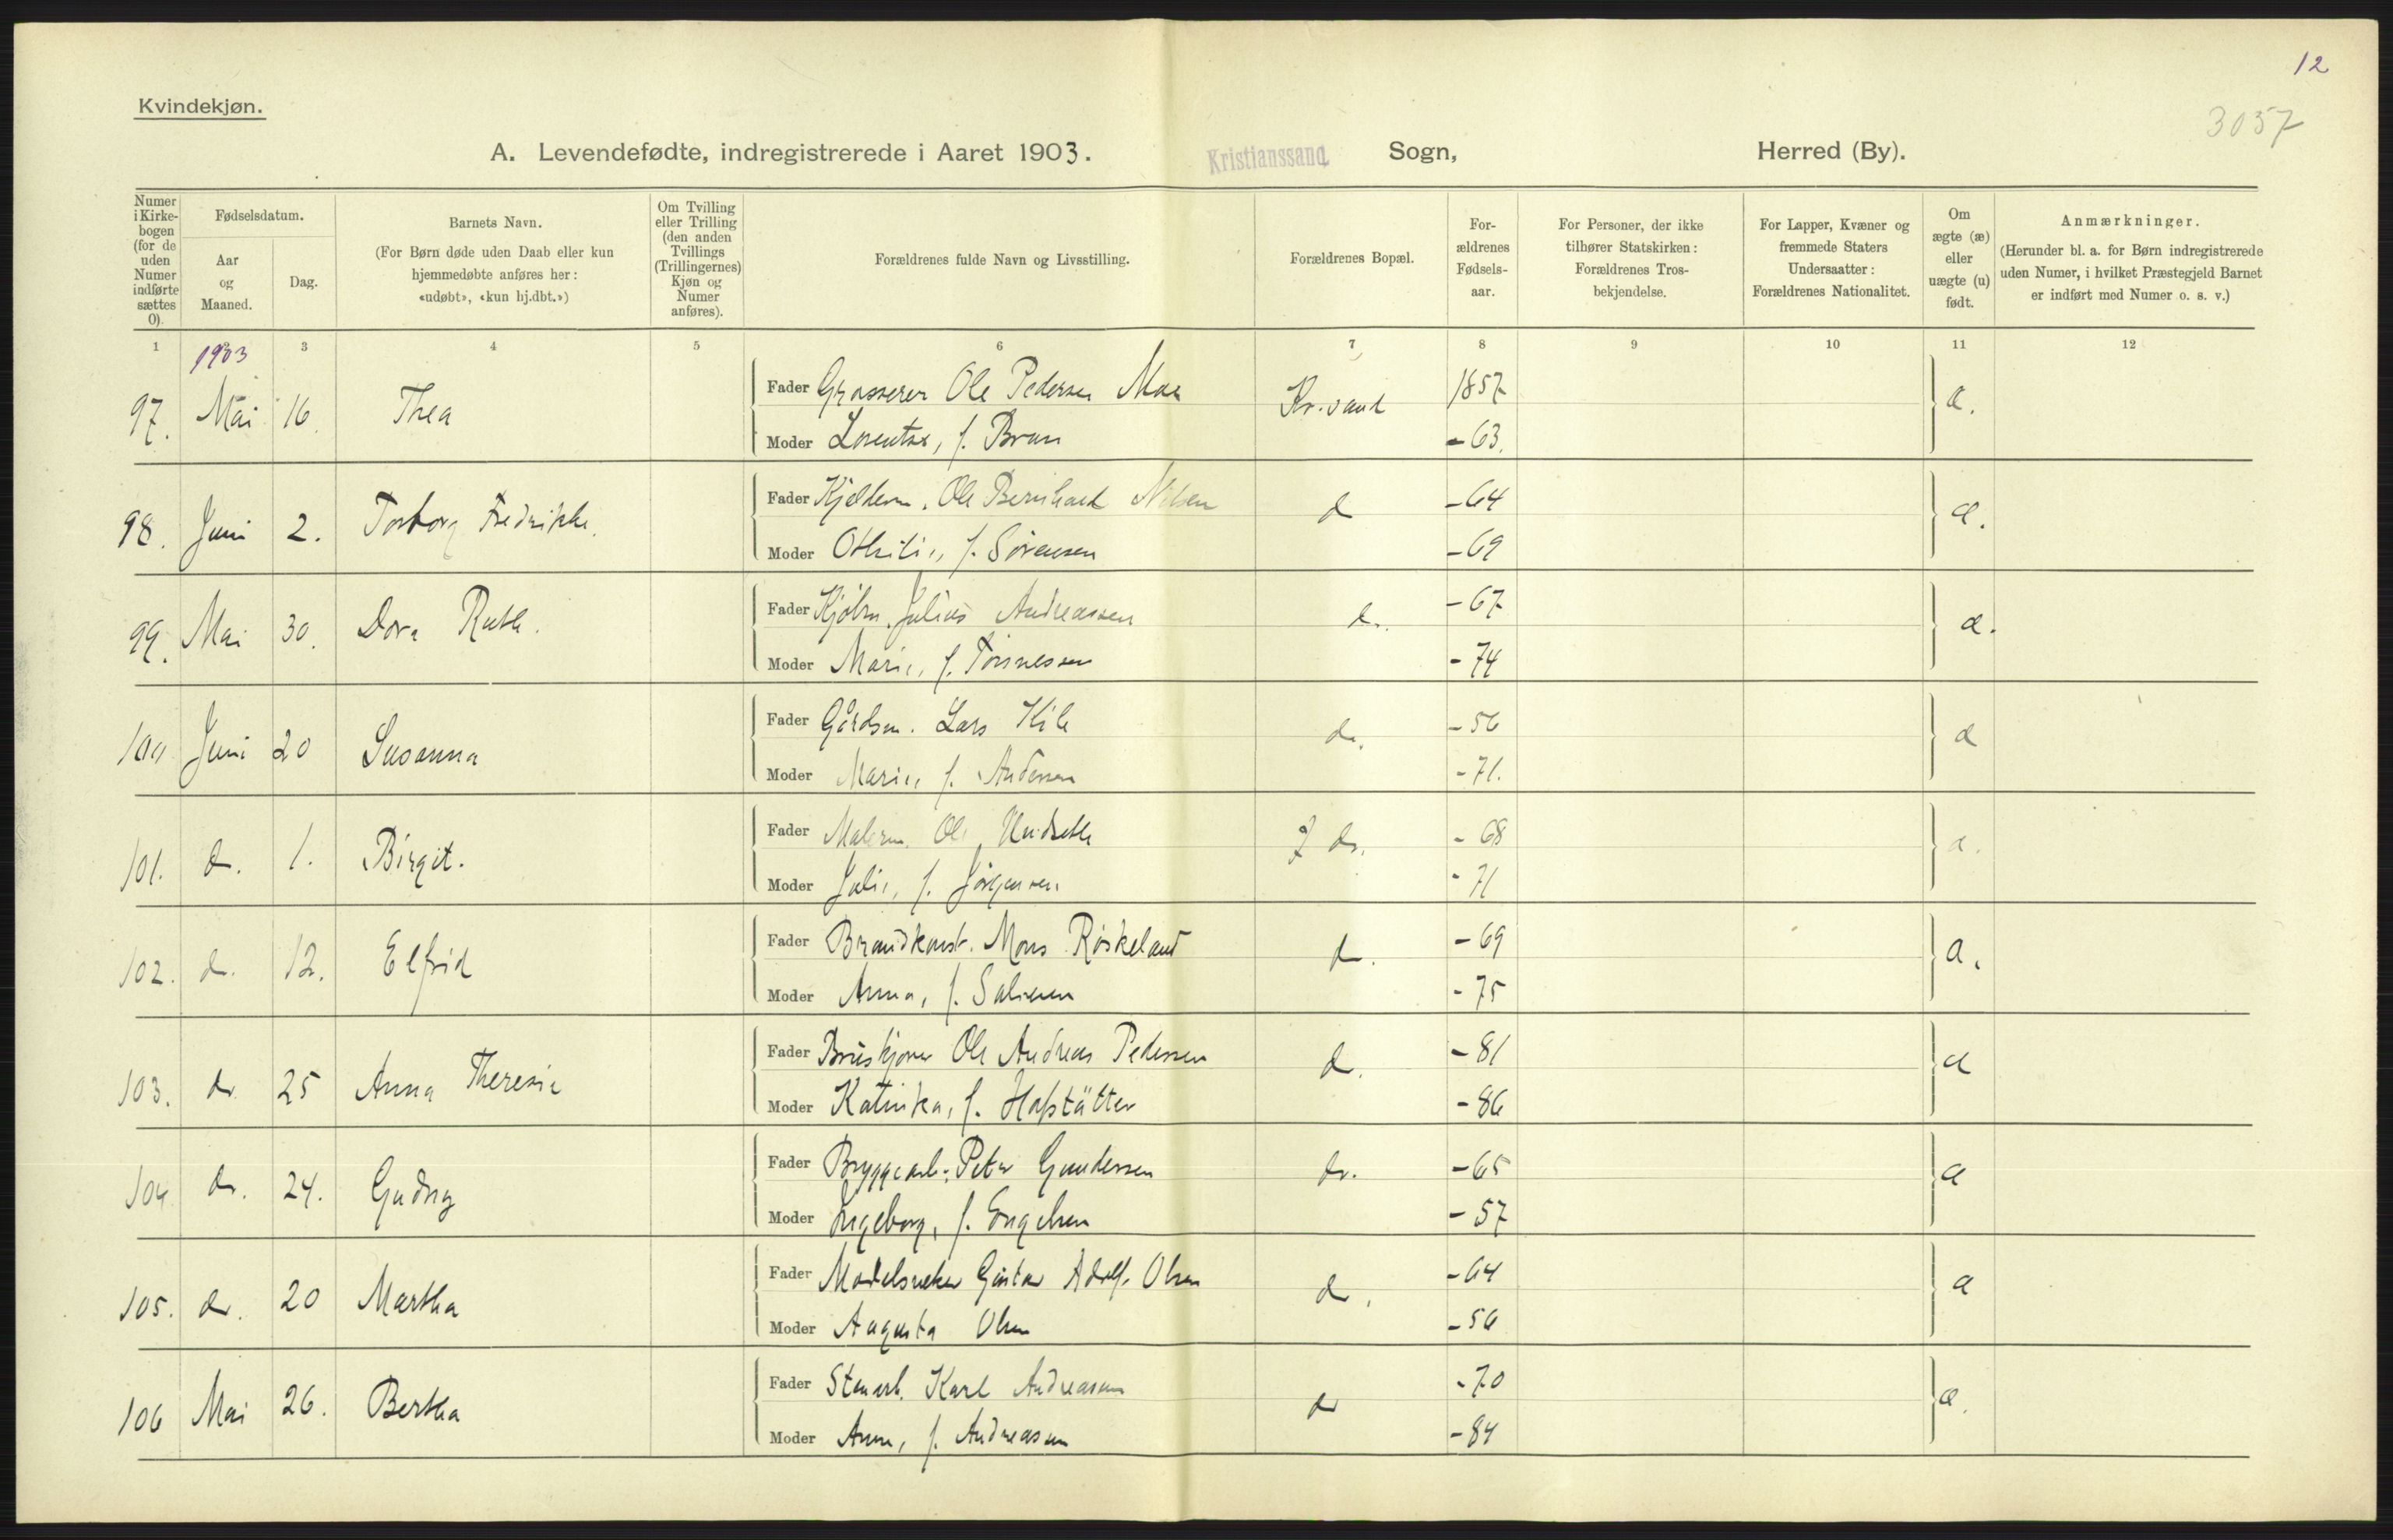 12
3057
Kvindekjøn.
A. Levendefødte, indregistrerede i Aaret 1903. Kristianssand Sogn, Herred (By).
Numer i Kirkebogen (for de uden Numer indførte sættes 0).
Fødselsdatum.
Aar og Maaned.
Dag.
Barnets Navn.
(For Børn døde uden Daab eller kun hjemmedøbte anføres her: «udøbt», «kun hj.dbt.»)
Om Tvilling eller Trilling (den anden Tvillings (Trillingernes) Kjøn og Numer anføres).
Forældrenes fulde Navn og Livsstilling.
Forældrenes Bopæl.
For-ældrenes Fødsels-aar.
For Personer, der ikke tilhører Statskirken: Forældrenes Tros-bekjendelse.
For Lapper, Kvæner og fremmede Staters Undersaatter: Forældrenes Nationalitet.
Om ægte (æ) eller uægte (u) født.
Anmærkninger.
(Herunder bl. a. for Børn indregistrerede uden Numer, i hvilket Præstegjeld Barnet er indført med Numer o. s. v.)
1 2 3 4 5 6 7 8 9 10 11 12
1903
97. Mai 16. Thea Fader Grosserer Ole Pedersen Moe Kr.sand 1857 æ.
Moder Lorentze, f. Brun - 63.
98. Juni 2. Torborg Fredrikke. Fader Kjelderm. Ole Bernhard Nilsen d - 64 æ.
Moder Othilie, f. Sørensen - 69
99. Mai 30. Dora Ruth. Fader Kjøbm. Julius Andreassen d. - 67 æ.
Moder Marie, f. Tønnessen - 74
100 Juni 20 Susanna Fader Gårdsm. Lars Kile do. - 56 æ
Moder Marie, f. Andersen - 71.
101. d. 1. Birgit. Fader Malerm. Ole Hudseth do. - 68 æ.
Moder Julie, f. Jörgensen - 71
102. d. 12. Elfrid Fader Brandkonst. Mons Röskeland d. - 69 æ.
Moder Anna, f. Salvesen - 75
103. do 25 Anna Theresie Fader Bruskjører Ole Andreas Pedersen d. - 81 æ
Moder Katinka, f. Hofstätter - 86
104 do. 24. Gudny Fader Bryggearb. Peter Gundersen do. - 65 æ
Moder Ingeborg, f. Engelsen - 57
105. do. 20 Martha Fader Modelsneker Gustav Adolf Olsen d. - 64 æ
Moder Augusta Olsen - 56
106 Mai 26. Bertha Fader Stenarb. Karl Andreasen do - 70 æ.
Moder Anne, f. Andreasen - 84